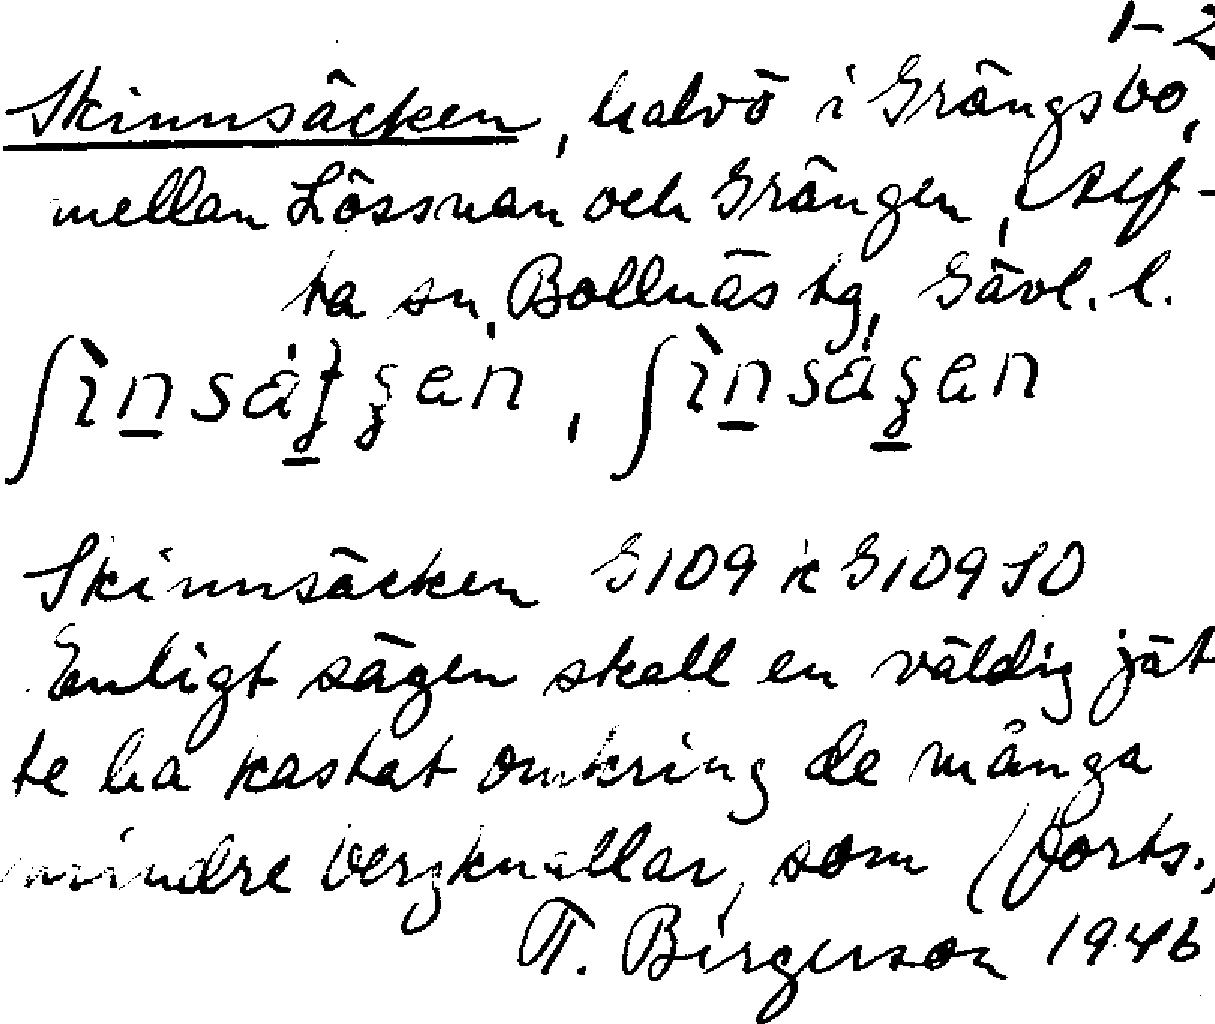 1-2
Skinnsäcken, halvö i Grängsbo,
mellan Lössnan och Grängen, Alf-
ta sn, Bollnäs tg, Gävl. l.
Skinnsäcken G109 ic G109 SO
Enligt sägen skall en väldig jät
te ha kastat omkring de många
mindre bergknallar, som (forts.,
T. Birgerson 1946